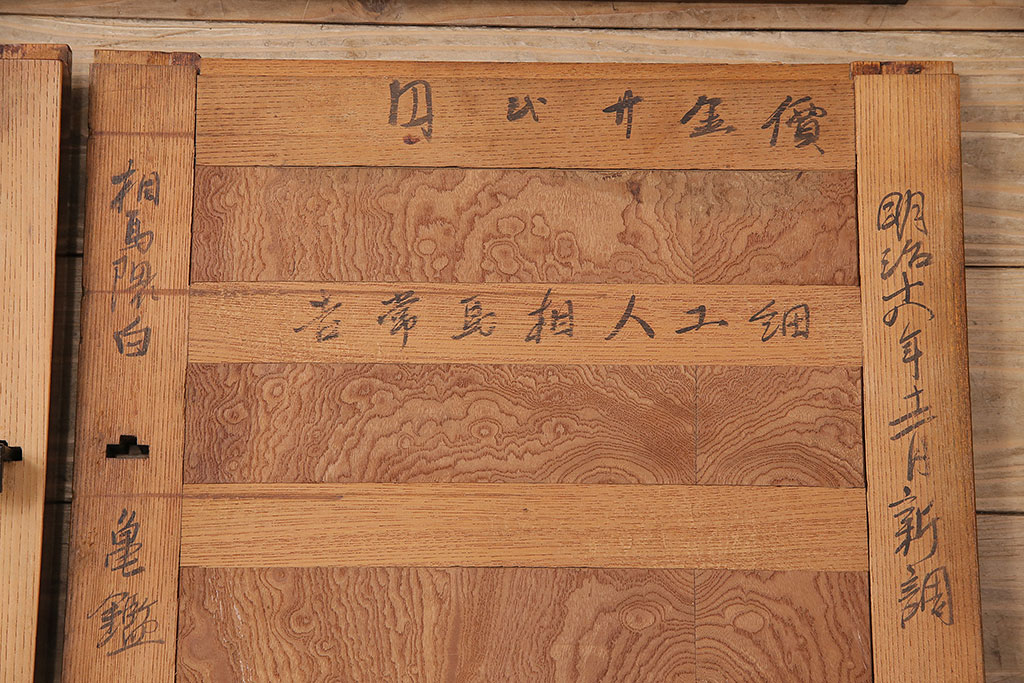 明治十六年十二月新調
價金廿弐円
細工人相馬常吉
相馬隈白
亀鑑